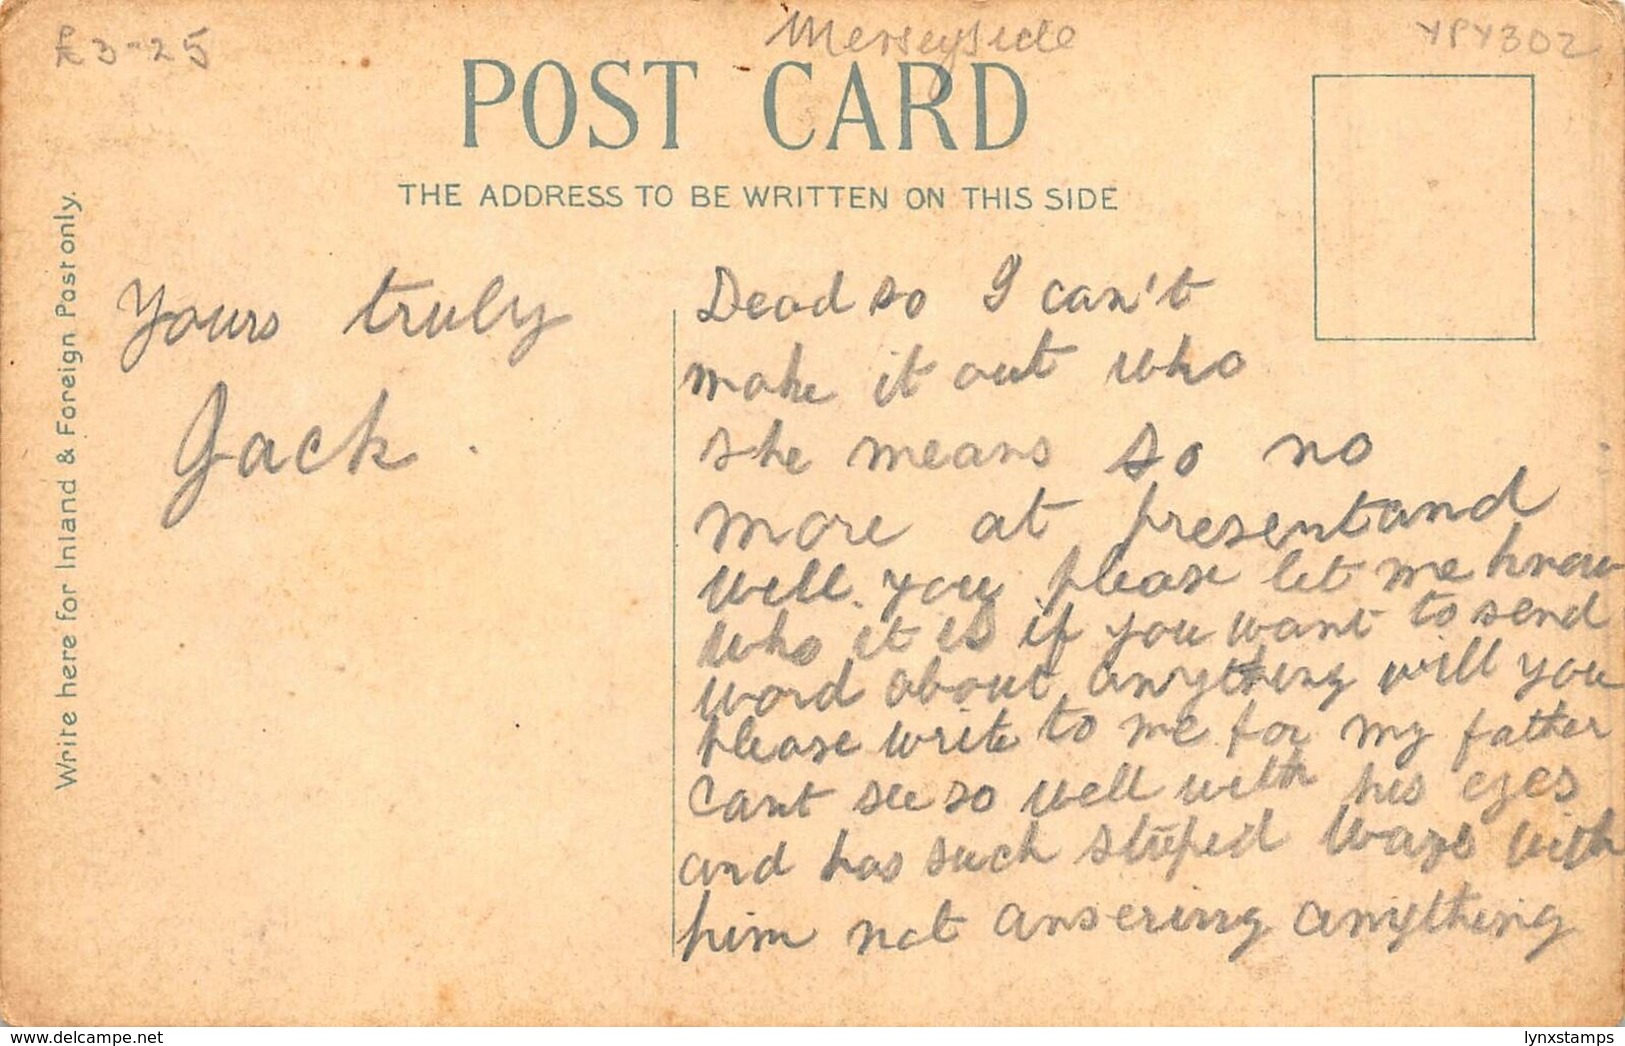 £3-25
Merseyside
YPY302
POST CARD
THE ADDRESS TO BE WRITTEN ON THIS SIDE
Write here for Inland & Foreign Post only.
Dead so I can't
make it out who
she means so no
more at present and
well you please let me know
who it is if you want to send
word about anything will you
please write to me for my father
cant see so well with his eyes
and has such stuped ways with
him not ansering anything
Yours truly
Jack.
www.delcampe.net
lynxstamps